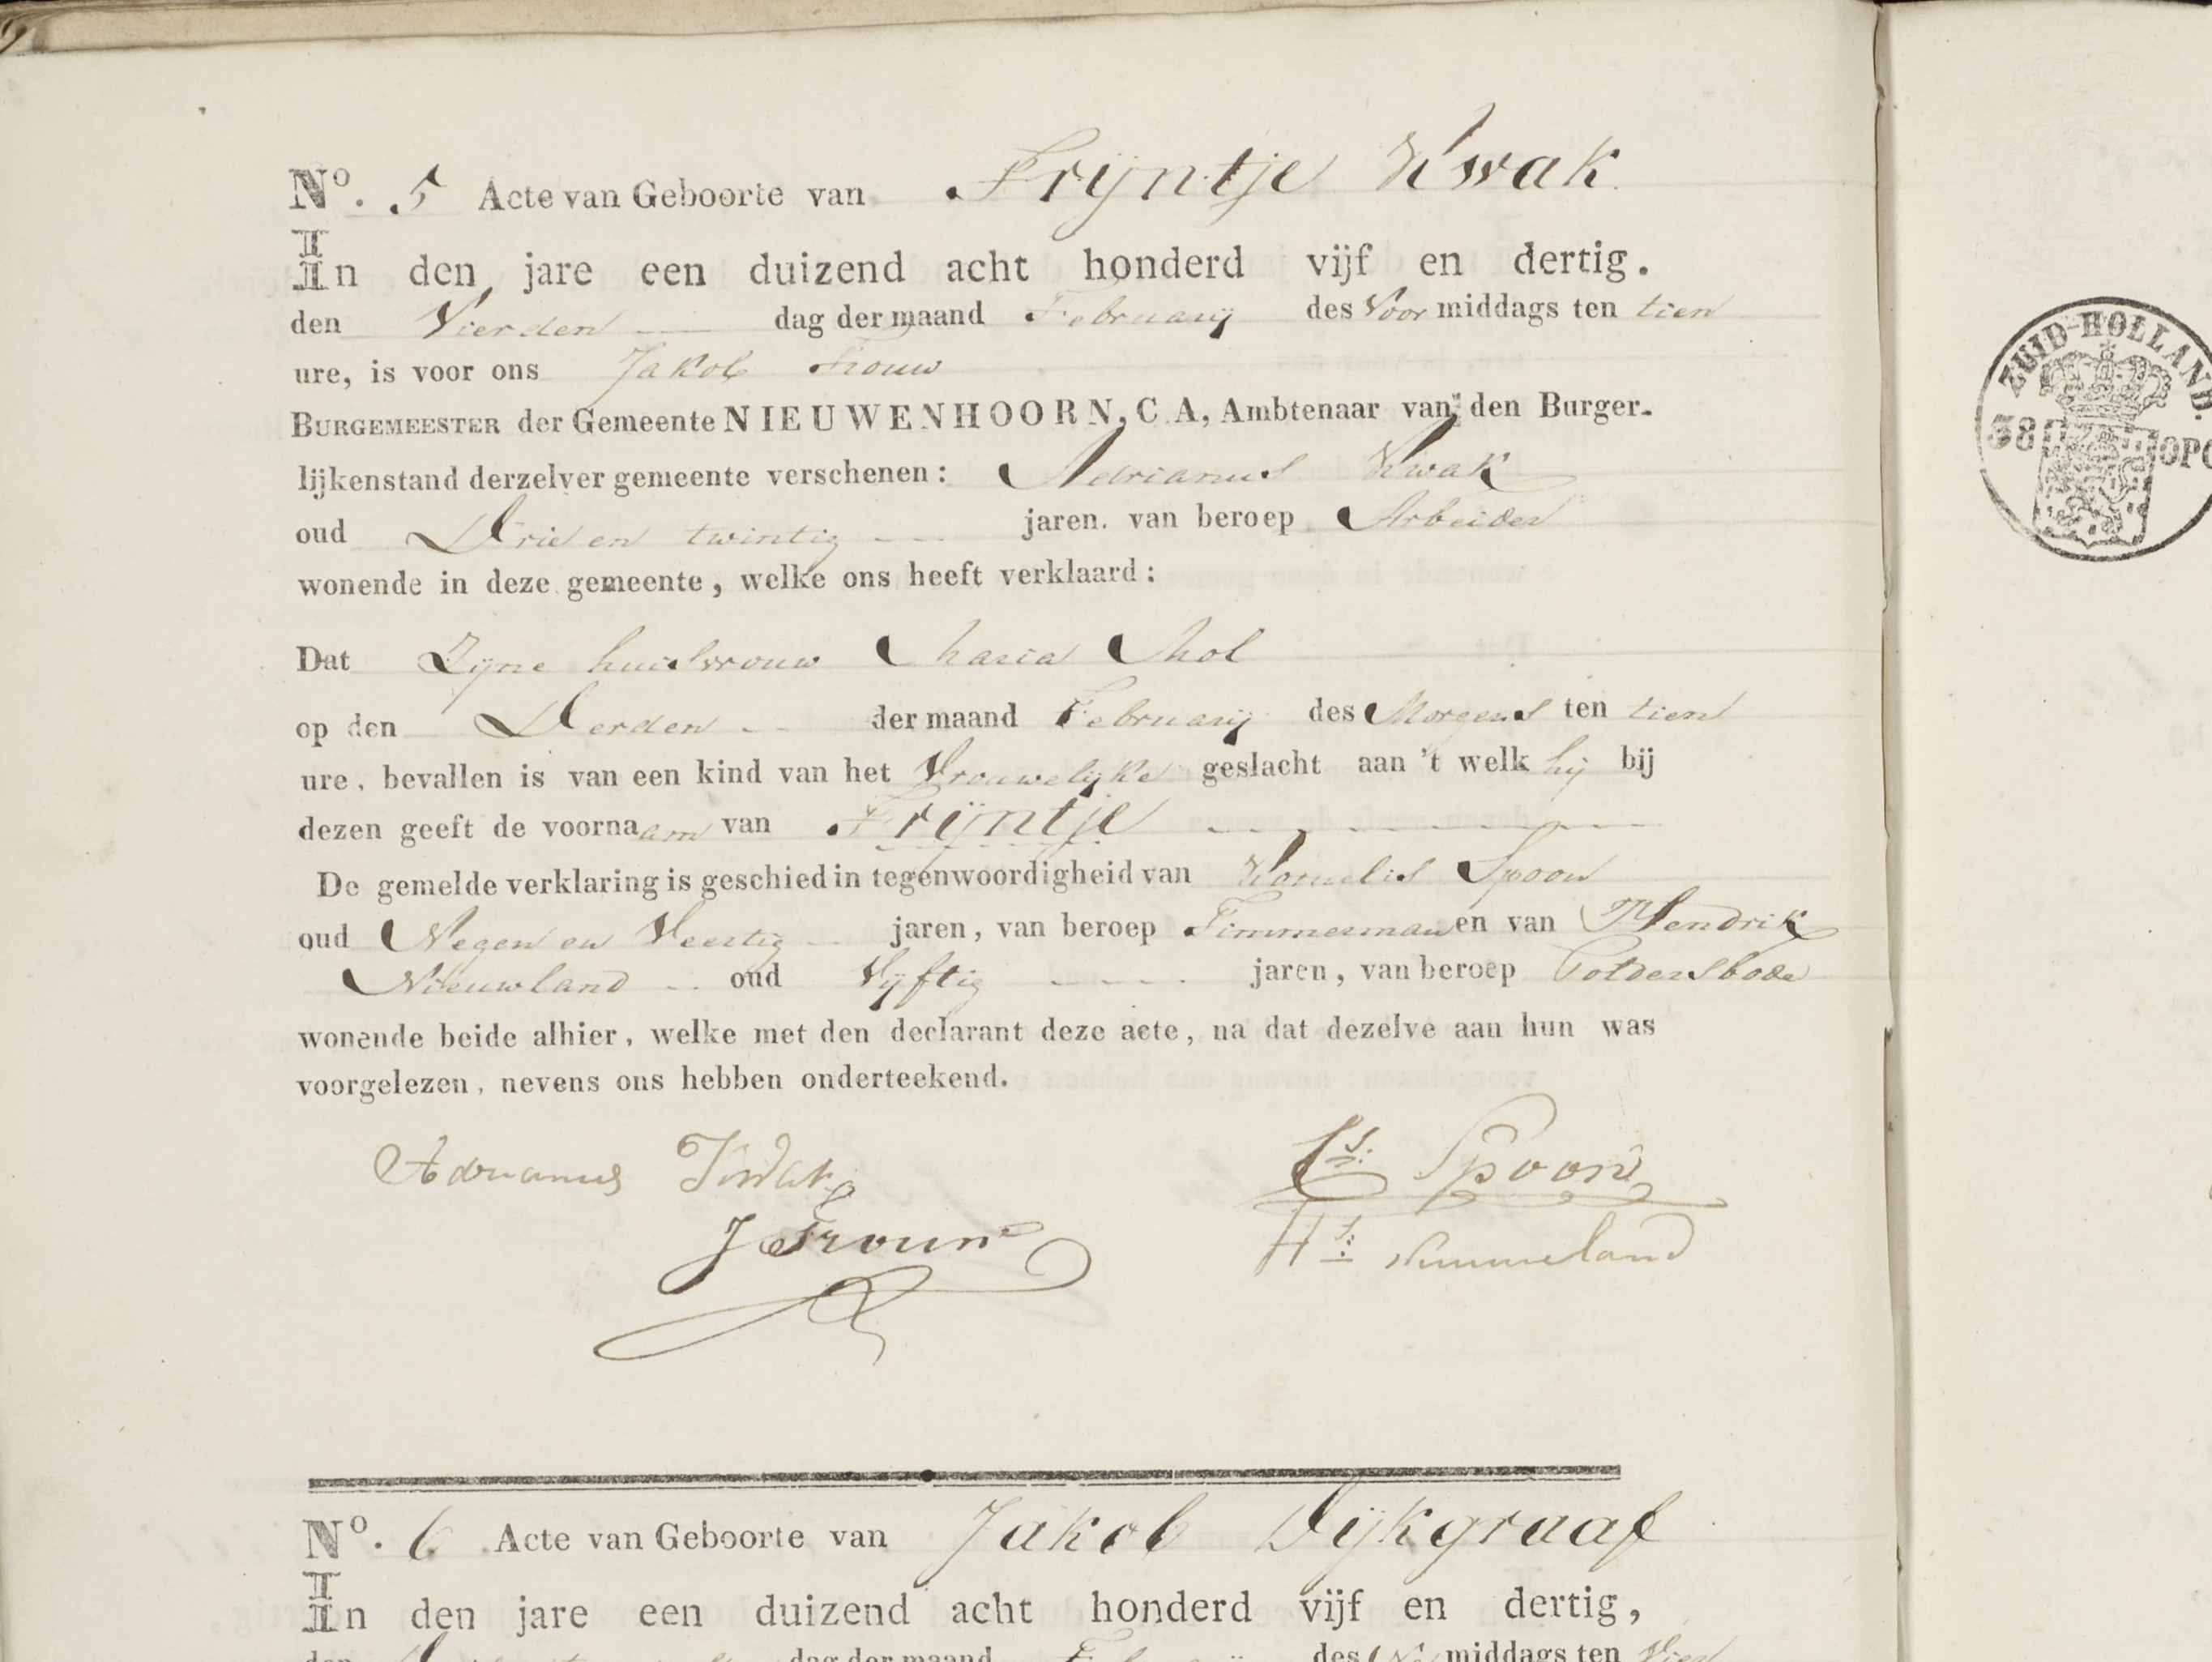 No. 5 Acte van Geboorte van Trijntje Kwak
In den jare een duizend acht honderd vijf en dertig.
den Vierden dag der maand Februarij des Voor middags ten tien
ure, is voor ons Jakob Trouw
BURGEMEESTER der Gemeente NIEUWENHOORN, C.A, Ambtenaar van den Burger-
lijkenstand derzelver gemeente verschenen: Adrianus Kwak
oud Drie en twintig jaren. van beroep Arbeider
wonende in deze gemeente, welke ons heeft verklaard:
Dat Zijne huisvrouw Maria Mol
op den Derden der maand Februarij des Morgens ten tien
ure, bevallen is van een kind van het Vrouwelijke geslacht aan 't welk hij bij
dezen geeft de voornaam van Trijntje
De gemelde verklaring is geschied in tegenwoordigheid van Kornelis Spoon
oud Negen en Veertig jaren, van beroep Timmerman en van Hendrik
Nieuwland oud Vijftig jaren, van beroep Poldersbode
wonende beide alhier, welke met den declarant deze acte, na dat dezelve aan hun was
voorgelezen, nevens ons hebben onderteekend.
Adrianus Kwak
Cs. Spoon
J Trouw
Hs. Nieuweland
No. 6 Acte van Geboorte van Jakob Dijkgraaf
In den jare een duizend acht honderd vijf en dertig,
den dag der maand des middags ten
ZUID-HOLLAND.
38